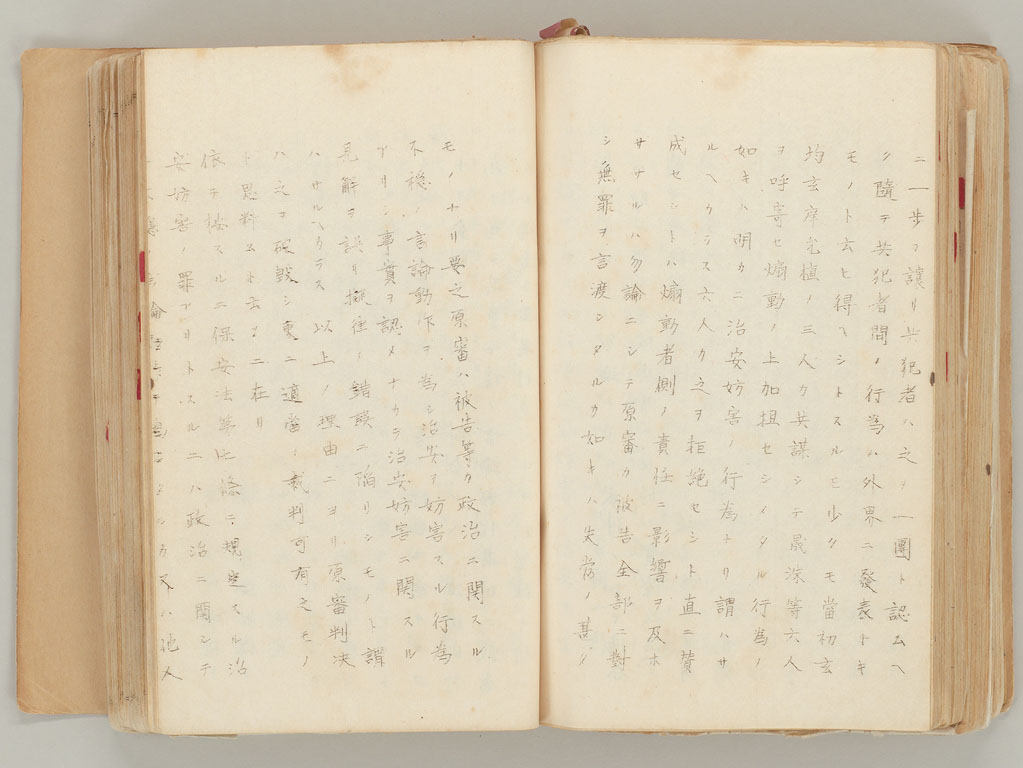 ニ一歩ヲ讓リ共犯者ハ之ヲ一團ト認ムヘ
ク隨テ共犯者間ノ行為ハ外界ニ發表ナキ
モノト云ヒ得ヘシトスルモ少クモ當初玄
均玄席宅植ノ三人カ共謀シテ晟深等六人
ヲ呼寄セ煽動ノ上加担セシメタル行為ノ
如キハ明カニ治安妨害ノ行為ナリ謂ハサ
ルヘカラス六人カ之ヲ拒絶セシト直ニ賛
成セシトハ煽動者側ノ責任ニ影響ヲ及ホ
ササルハ勿論ニシテ原審カ被告全部ニ對
シ無罪ヲ言渡シタルカ如キハ失當ノ甚シ
モノナリ要之原審ハ被告等カ政治ニ関スル
不穏ノ言論動作ヲ為シ治安ヲ妨害スル行為
アリシ事實ヲ認メナカラ治安妨害ニ関スル
見解ヲ誤リ擬律ノ錯誤ニ陥リシモノト謂
ハサルヘカラス以上ノ理由ニヨリ原審判決
ハ之ヲ破毀シ更ニ適當ノ裁判可有之モノ
ト思料スト云フニ在リ
依テ按スルニ保安法第七條ニ規定スル治
安妨害ノ罪アリトスルニハ政治ニ関シテ
不穏ノ言論動作ヲ為シタルカ又ハ他人